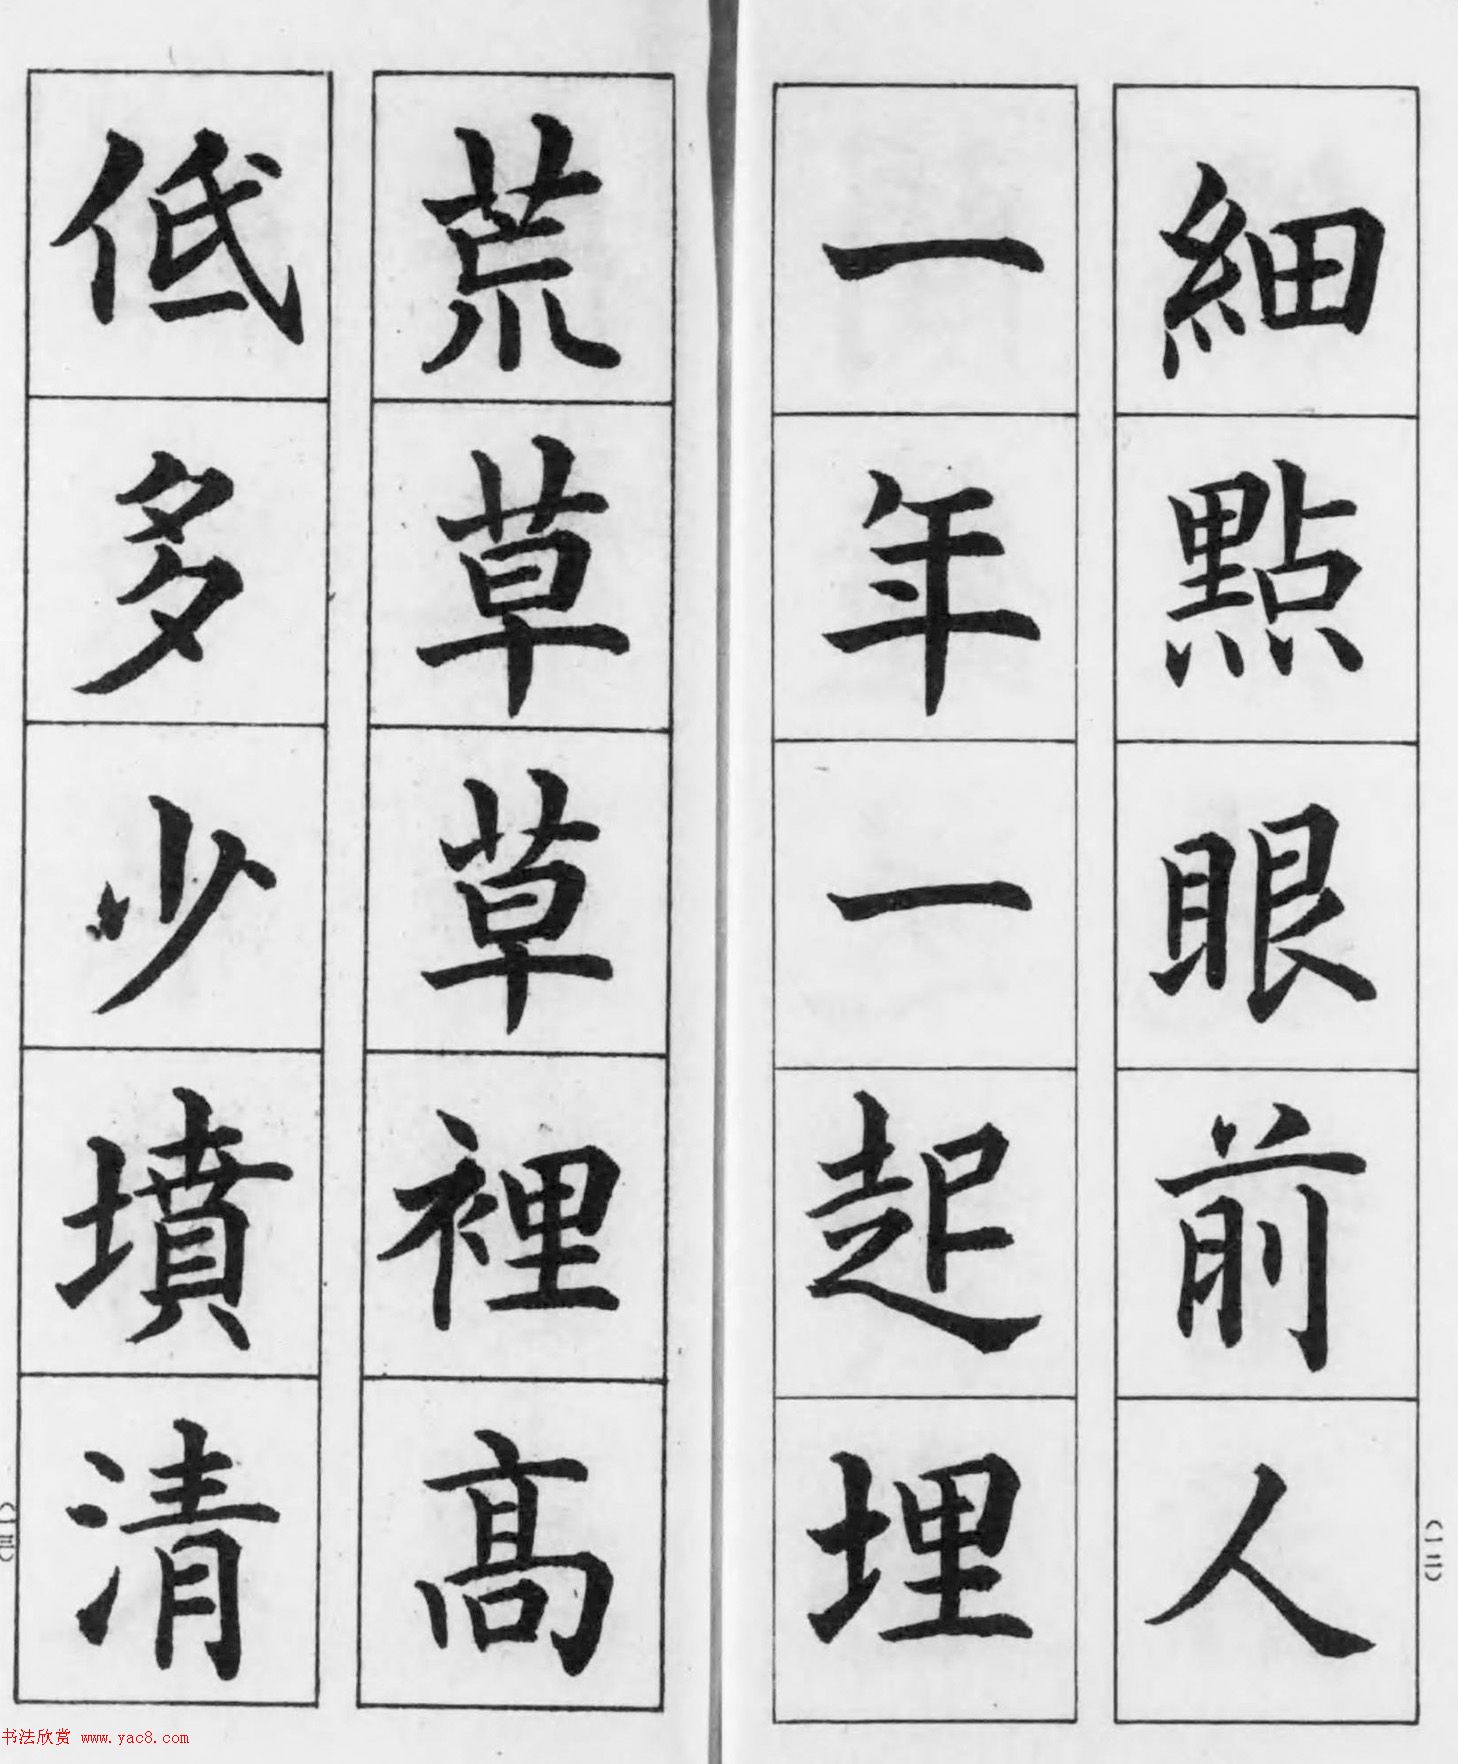 細點眼前人
一年一起埋
荒草草裡高
低多少墳清
(一二)
(一三)
书法欣赏 www.yac8.com